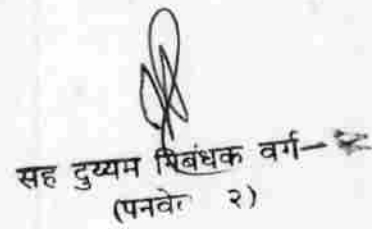 सह दुय्यम निबंधक वर्ग-
(पनवे २)